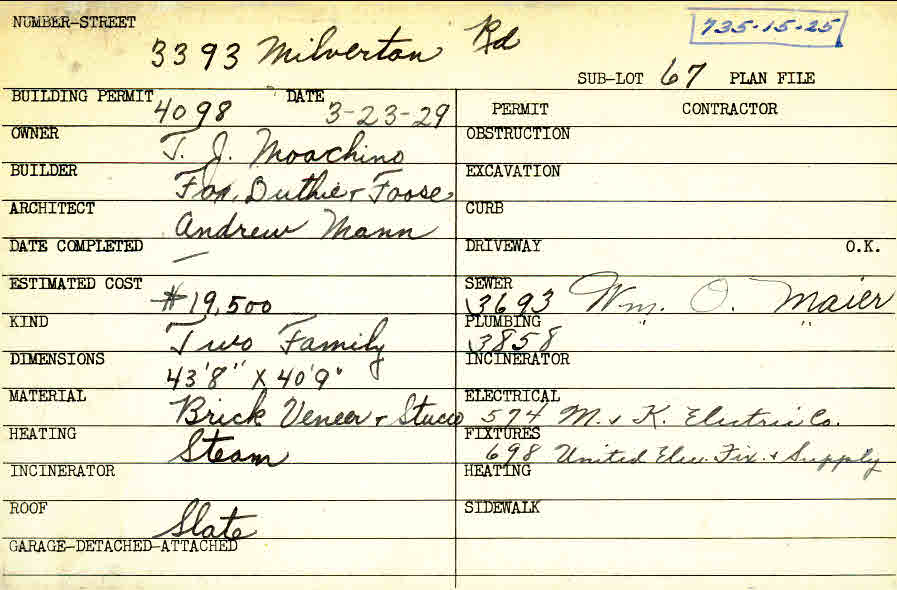 NUMBER-STREET
3393 Milverton Rd
735-15-25
SUB-LOT 67 PLAN FILE
BUILDING PERMIT 4098 DATE 3-23-29
OWNER T. J. Moachino
BUILDER Fox, Duthie + Foose
ARCHITECT Andrew Mann
DATE COMPLETED —
ESTIMATED COST $19,500
KIND Two Family
DIMENSIONS 43'8" X 40'9"
MATERIAL Brick Veneer + Stucco
HEATING Steam
INCINERATOR
ROOF Slate
GARAGE-DETACHED-ATTACHED
PERMIT CONTRACTOR
OBSTRUCTION
EXCAVATION
CURB
DRIVEWAY O.K.
SEWER 3693 Wm. O. Maier
PLUMBING 3858 " "
INCINERATOR
ELECTRICAL 574 M. & K. Electric Co.
FIXTURES 698 United Elec. Fix. & Supply
HEATING
SIDEWALK